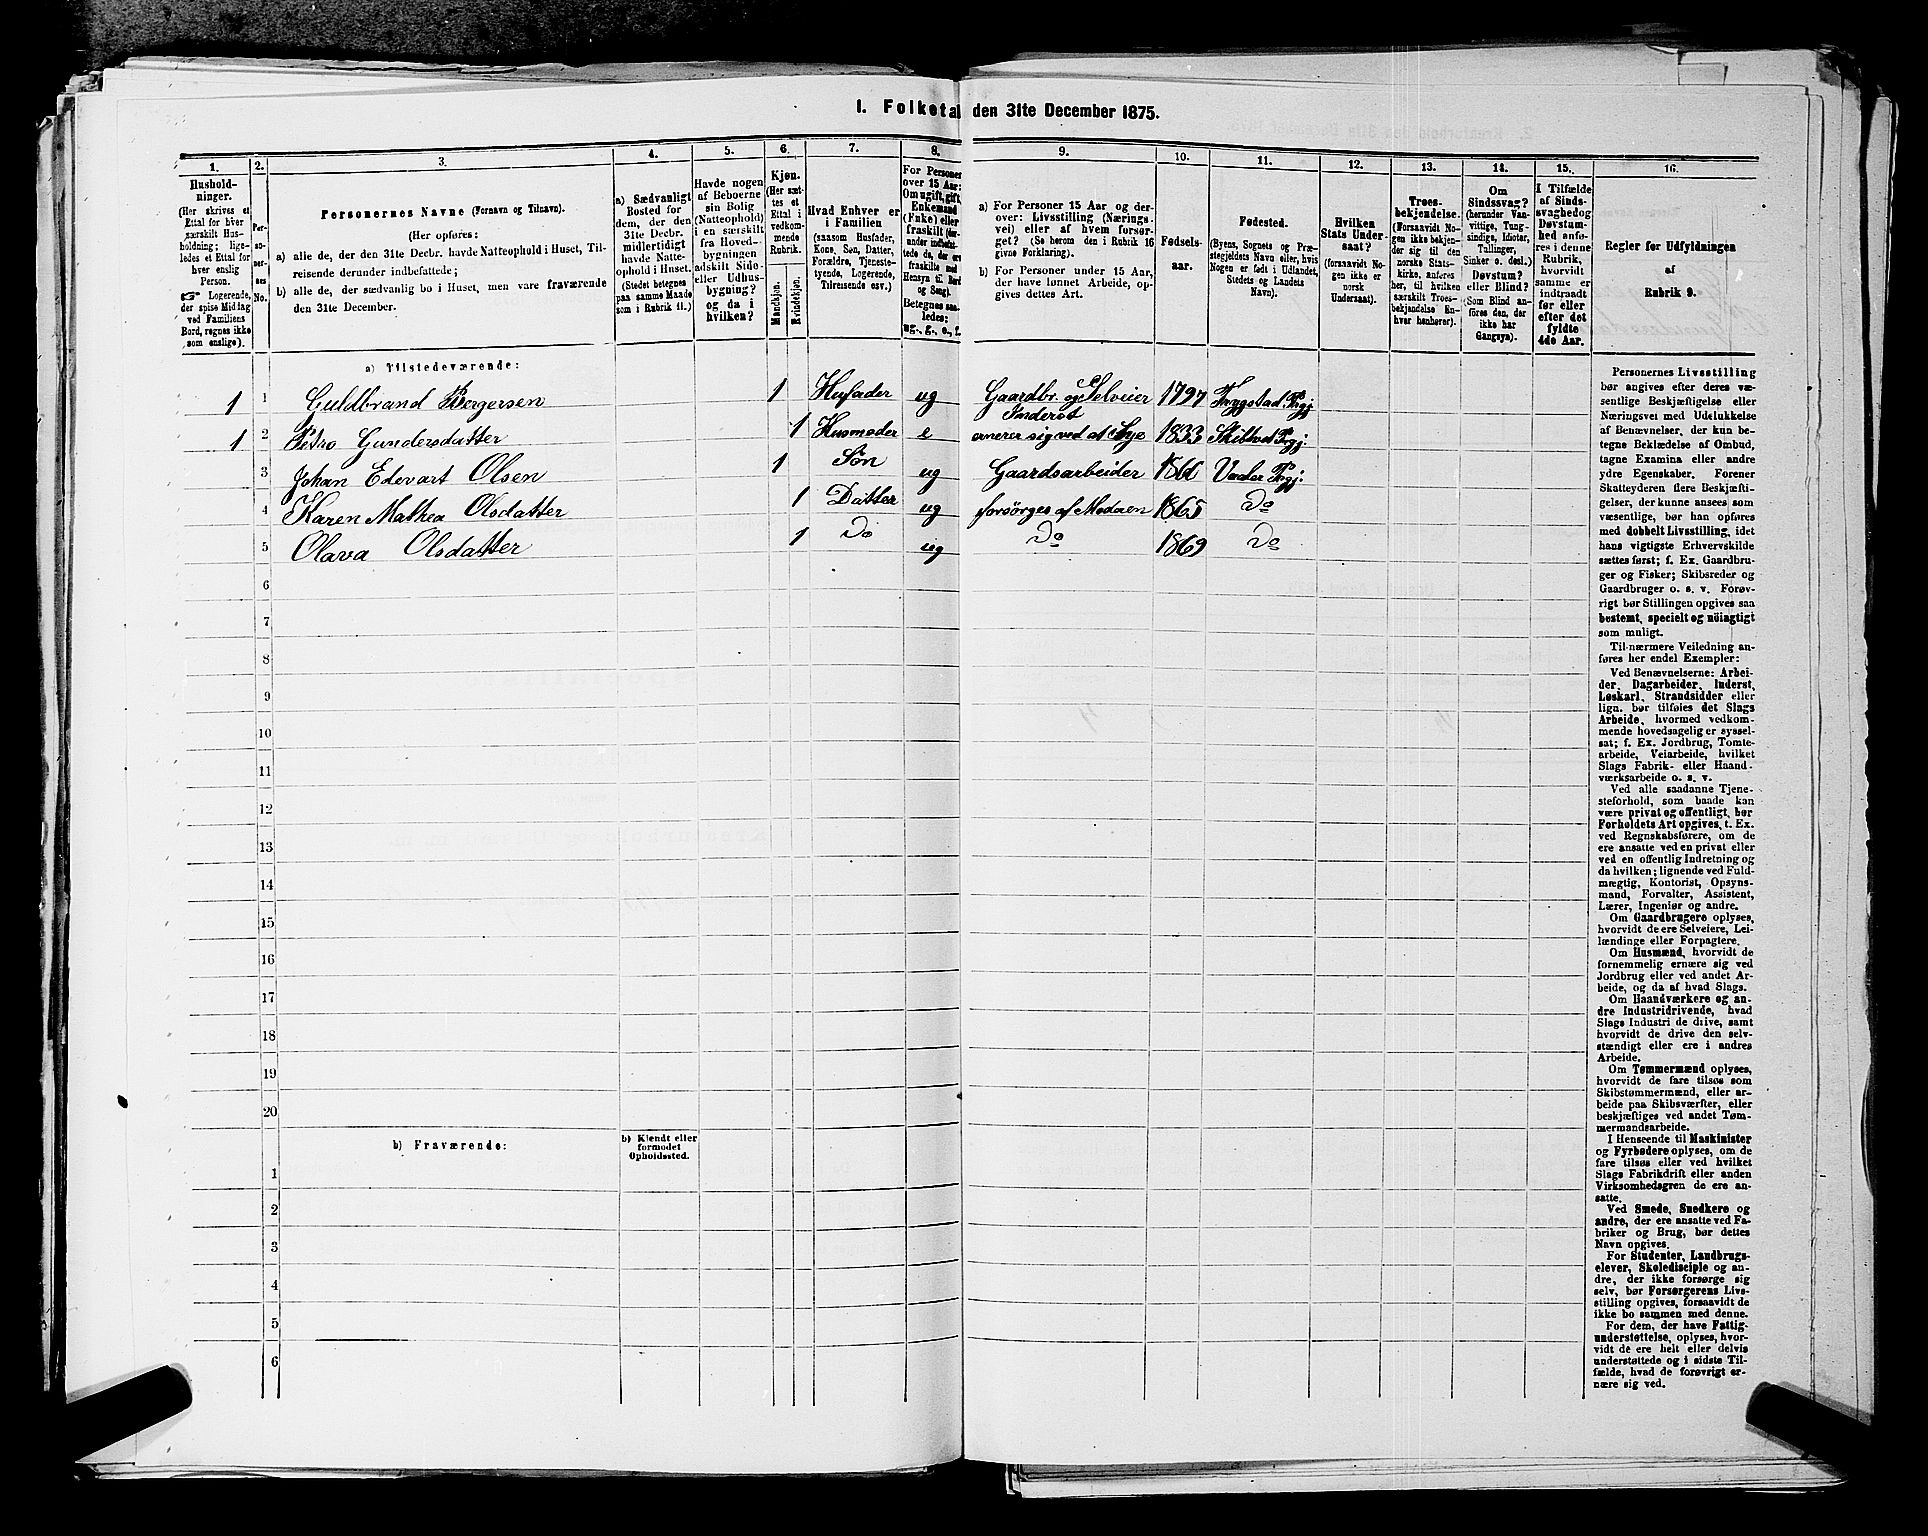 I. Folketal den 31te December 1875.
1. 2. 3. 4. 5. 6. 7. 8. 9. 10. 11. 12. 13. 14. 15. 16.
Hushold-
ninger.
(Her skrives et
Ettal for hver
særskilt Hus-
holdning; lige-
ledes et Ettal
for hver enslig
Person.
☞ Logerende,
der spise Middag
ved Familiens
Bord, regnes ikke
som enslige).
Per-
so-
ner-
nes
No.
Personernes Navne (Fornavn og Tilnavn).
(Her opføres:
a) alle de, der den 31te Decbr. havde Natteophold i Huset, Til-
reisende derunder indbefattede;
b) alle de, der sædvanlig bo i Huset, men vare fraværende
den 31te December.
a) Sædvanligt
Bosted for
dem, der den
31te Decbr.
midlertidigt
havde Natte-
ophold i Huset.
(Stedet betegnes
paa samme Maade
som i Rubrik 11.)
Havde nogen
af Beboerne
sin Bolig
(Natteophold)
i en særskilt
fra Hoved-
bygningen
adskilt Side-
eller Udhus-
bygning?
og da i
hvilken?
Kjøn.
(Her sæt-
tes et
Ettal i
vedkom-
mende
Rubrik.
Mandkjøn.
Kvindekjøn.
Hvad Enhver er
i Familien
(saasom Husfader,
Kone, Søn, Datter,
Forældre, Tjeneste-
tyende, Logerende,
Tilreisende osv.)
For Personer
over 15 Aar:
Om ugift, gift,
Enkemand
(Enke) eller
fraskilt
Betegnes saa-
ledes:
ug., g., e., f.
a) For Personer 15 Aar og der-
over: Livsstilling (Nærings-
vei) eller af hvem forsør-
get? (Se herom den i Rubrik 16
givne Forklaring).
b) For Personer under 15 Aar,
der have lønnet Arbeide, op-
gives dettes Art.
Fødsels-
aar.
Fødested.
(Byens, Sognets og Præ-
stegjeldets Navn eller, hvis
Nogen er født i Udlandet,
Stedets og Landets
Navn).
Hvilken
Stats Under-
saat?
(forsaavidt No-
gen ikke er
norsk
Undersaat).
Troes-
bekjendelse.
(Forsaavidt No-
gen ikke bekjen-
der sig til den
norske Stats-
kirke, anføres
her, til hvilken
særskilt Troes-
bekjendelse En-
hver henhører).
Om
Sindssvag?
(herunder Van-
vittige, Tung-
sindige, Idioter,
Tullinger,
Sinker o. desl.)
Døvstum?
eller Blind?
(Som Blind an-
føres den, der
ikke har
Gangsyn).
I Tilfælde
af Sinds-
svaghed og
Døvstum-
hed anfø-
res i denne
Rubrik,
hvorvidt
samme er
indtraadt
før eller
efter det
fyldte
4de Aar.
Regler for Udfyldningen
af
Rubrik 9.
a) Tilstedeværende:
1 1 Guldbrand Bergersen 1 Husfader ug Gaardbr. og Selveier 1797 Trygstad Prgj
1 2 Petro Gundersdatter 1 Husmoder e Inderst ernerer sig ved at Sye 1833 Skibtvet Prgj.
3 Johan Edevart Olsen 1 Søn ug Gaardsarbeider Prgj:
4 Karen Mathea Olsdatter 1 Datter ug forsörges af Modoen 1865 Do
5 Olava Olsdatter 1 Do ug Do 1869 Do
6
7
8
9
10
11
12
13
14
15
16
17
18
19
20
b) Fraværende:
b) Kjendt eller
formodet
Opholdssted.
1
2
3
4
5
6
Personernes Livsstilling
bør angives efter deres væ-
sentlige Beskjæftigelse eller
Næringsvei med Udelukkelse
af Benævnelser, der kun be-
tegne Beklædelse af Ombud,
tagne Examina eller andre
ydre Egenskaber. Forener
Skatteyderen flere Beskjæfti-
gelser, der kunne ansees som
væsentlige, bør han opføres
med dobbelt Livsstilling, idet
hans vigtigste Erhvervskilde
sættes først; f. Ex. Gaardbru-
ger og Fisker; Skibsreder og
Gaardbruger o. s. v. Forøv-
rigt bør Stillingen opgives saa
bestemt, specielt og nøiagtigt
som muligt.
Til nærmere Veiledning an-
føres her endel Exempler:
Ved Benævnelserne: Arbei-
der, Dagarbeider, Inderst,
Løskarl, Strandsidder eller
lign. bør tilføies det Slags
Arbeide, hvormed vedkom-
mende hovedsagelig er syssel-
sat; f. Ex. Jordbrug, Tomte-
arbeide, Veiarbeide, hvilket
Slags Fabrik- eller Haand-
værksarbeide o. s. v.
Ved alle saadanne Tjene-
steforhold, som baade kan
være privat og offentligt, bør
Forholdets Art opgives, t. Ex.
ved Regnskabsførere, om de
ere ansatte ved en privat eller
ved en offentlig Indretning og
da hvilken; lignende ved Fuld-
mægtig, Kontorist, Opsyns-
mand, Forvalter, Assistent,
Lærer, Ingeniør og andre.
Om Gaardbrugere oplyses,
hvorvidt de ere Selveiere, Lei-
lændinge eller Forpagtere.
Om Husmænd, hvorvidt de
fornemmelig ernære sig ved
Jordbrug eller ved andet Ar-
beide, og da af hvad Slags.
Om Haandværkere og an-
dre Industridrivende, hvad
Slags Industri de drive, samt
hvorvidt de drive den selv-
stændigt eller ere i andres
Arbeide.
Om Tømmermænd oplyses,
hvorvidt de fare tilsøs som
Skibstømmermænd, eller ar-
beide paa Skibsværfter, eller
beskjæftiges ved andet Tøm-
mermandsarbeide.
I Henseende til Maskinister
og Fyrbødere oplyses, om de
fare tilsøs eller ved hvilket
Slags Fabrikdrift eller anden
Virksomhedsgren de ere an-
satte.
Ved Smede, Snedkere og
andre, der ere ansatte ved Fa-
briker og Brug, bør dettes
Navn opgives.
For Studenter, Landbrugs-
elever, Skoledisciple og an-
dre, der ikke forsørge sig
selv, bør Forsørgerens Livs-
stilling opgives, forsaavidt de
ikke bo sammen med denne.
For dem, der have Fattig-
understøttelse, oplyses, hvor-
vidt de ere helt eller delvis
understøttede og i sidste Til-
fælde, hvad de forøvrigt er-
nære sig ved.